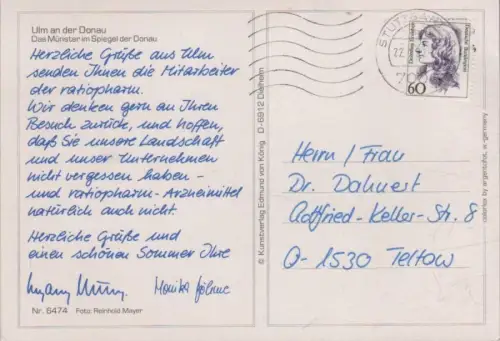 Ulm an der Donau
Das Münster im Spiegel der Donau
Herzliche Grüße aus Ulm
senden Ihnen die Mitarbeiter
der ratiopharm.
Wir denken gern an Ihren
Besuch zurück, und hoffen,
daß Sie unsere Landschaft
und unser Unternehmen
nicht vergessen haben -
und ratiopharm-Arzneimittel
natürlich auch nicht.
Herzliche Grüße und
einen schönen Sommer Ihre
Monika
Nr. 6474 Foto: Reinhold Mayer
© Kunstverlag Edmund von König D-6912 Dielheim
STUTTGART
22
70
60
Herrn / Frau
Dr. Dahnert
Gottfried-Keller-Str. 8
O-1530 Teltow